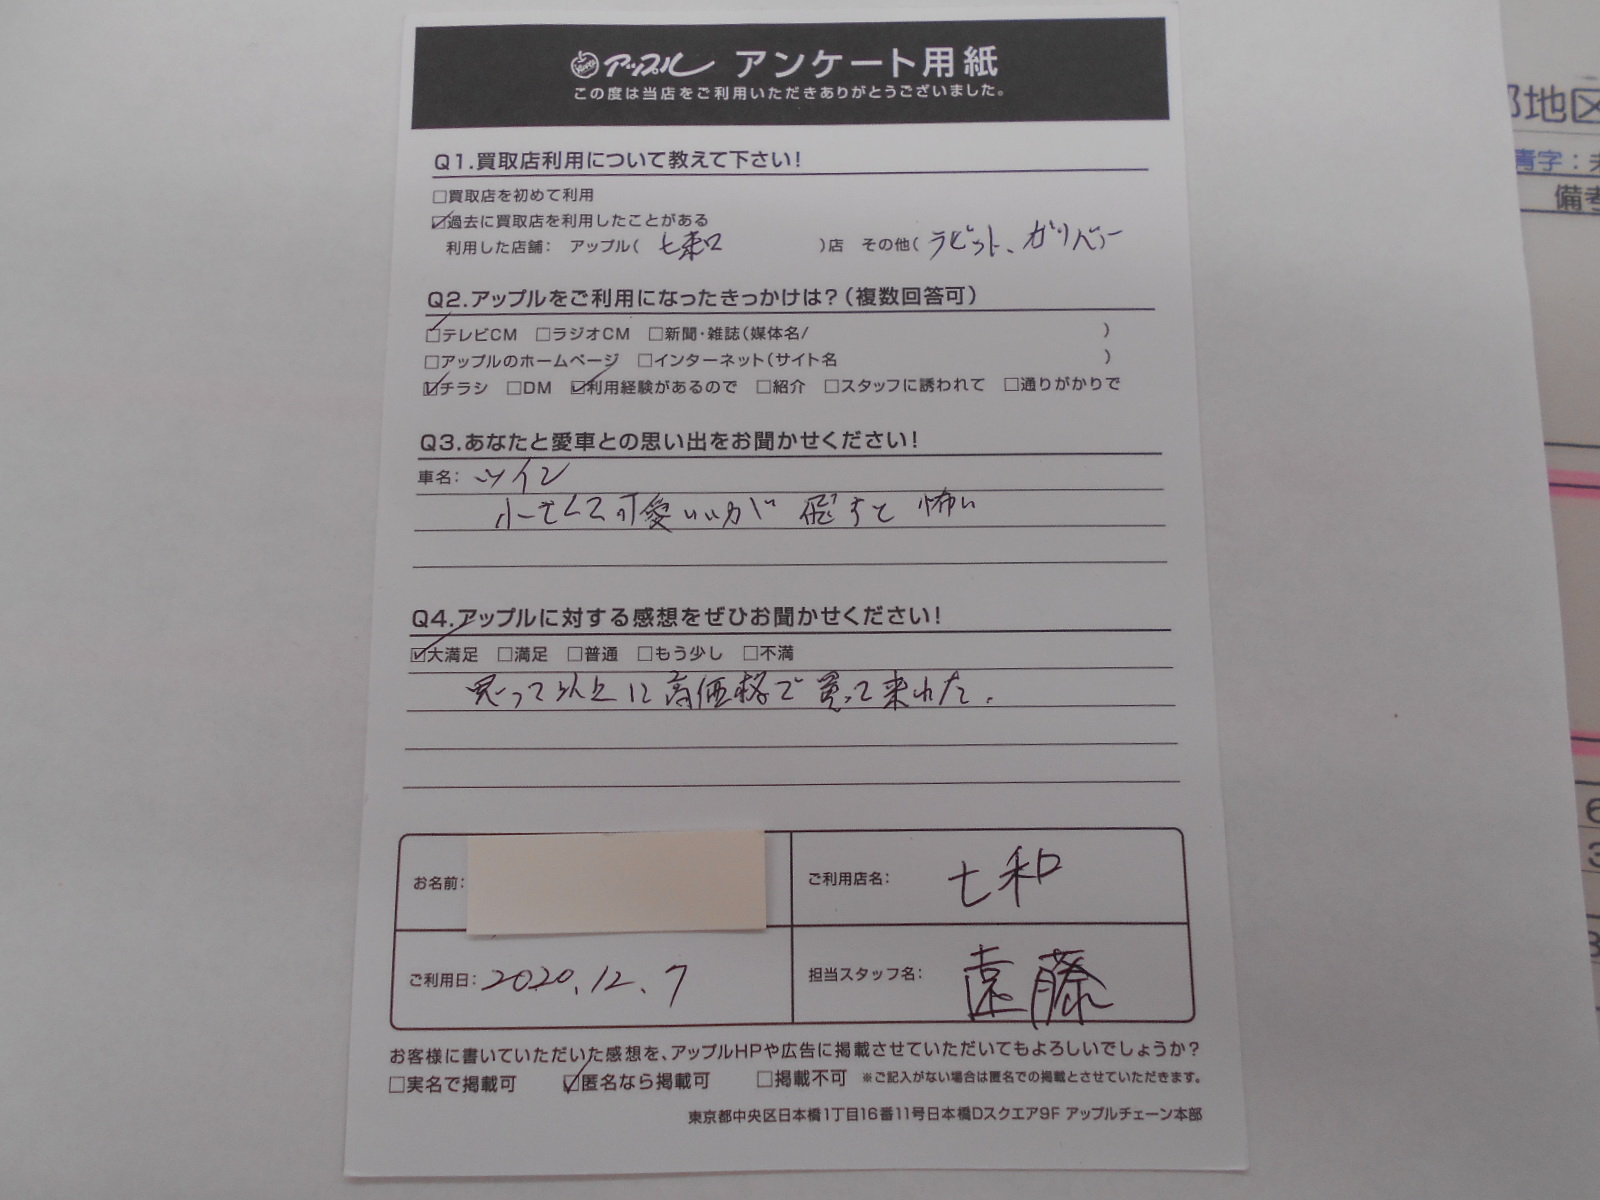 アップル アンケート用紙
この度は当店をご利用いただきありがとうございました。
Q1.買取店利用について教えて下さい!
□買取店を初めて利用
☑過去に買取店を利用したことがある
利用した店舗: アップル( 七和 )店 その他( ラビット、ガリバー
Q2.アップルをご利用になったきっかけは?(複数回答可)
☑テレビCM □ラジオCM □新聞・雑誌(媒体名/ )
□アップルのホームページ □インターネット(サイト名 )
☑チラシ □DM ☑利用経験があるので □紹介 □スタッフに誘われて □通りがかりで
Q3.あなたと愛車との思い出をお聞かせください!
車名: ツイン
小さくて可愛いいが 飛すと 怖い
Q4.アップルに対する感想をぜひお聞かせください!
☑大満足 □満足 □普通 □もう少し □不満
思って以上に高価格で買って来れた.
お名前:
ご利用店名: 七和
ご利用日: 2020.12.7
担当スタッフ名: 遠藤
お客様に書いていただいた感想を、アップルHPや広告に掲載させていただいてもよろしいでしょうか?
□実名で掲載可 ☑匿名なら掲載可 □掲載不可 ※ご記入がない場合は匿名での掲載とさせていただきます。
東京都中央区日本橋1丁目16番11号日本橋Dスクエア9F アップルチェーン本部
地区
青字:
備考